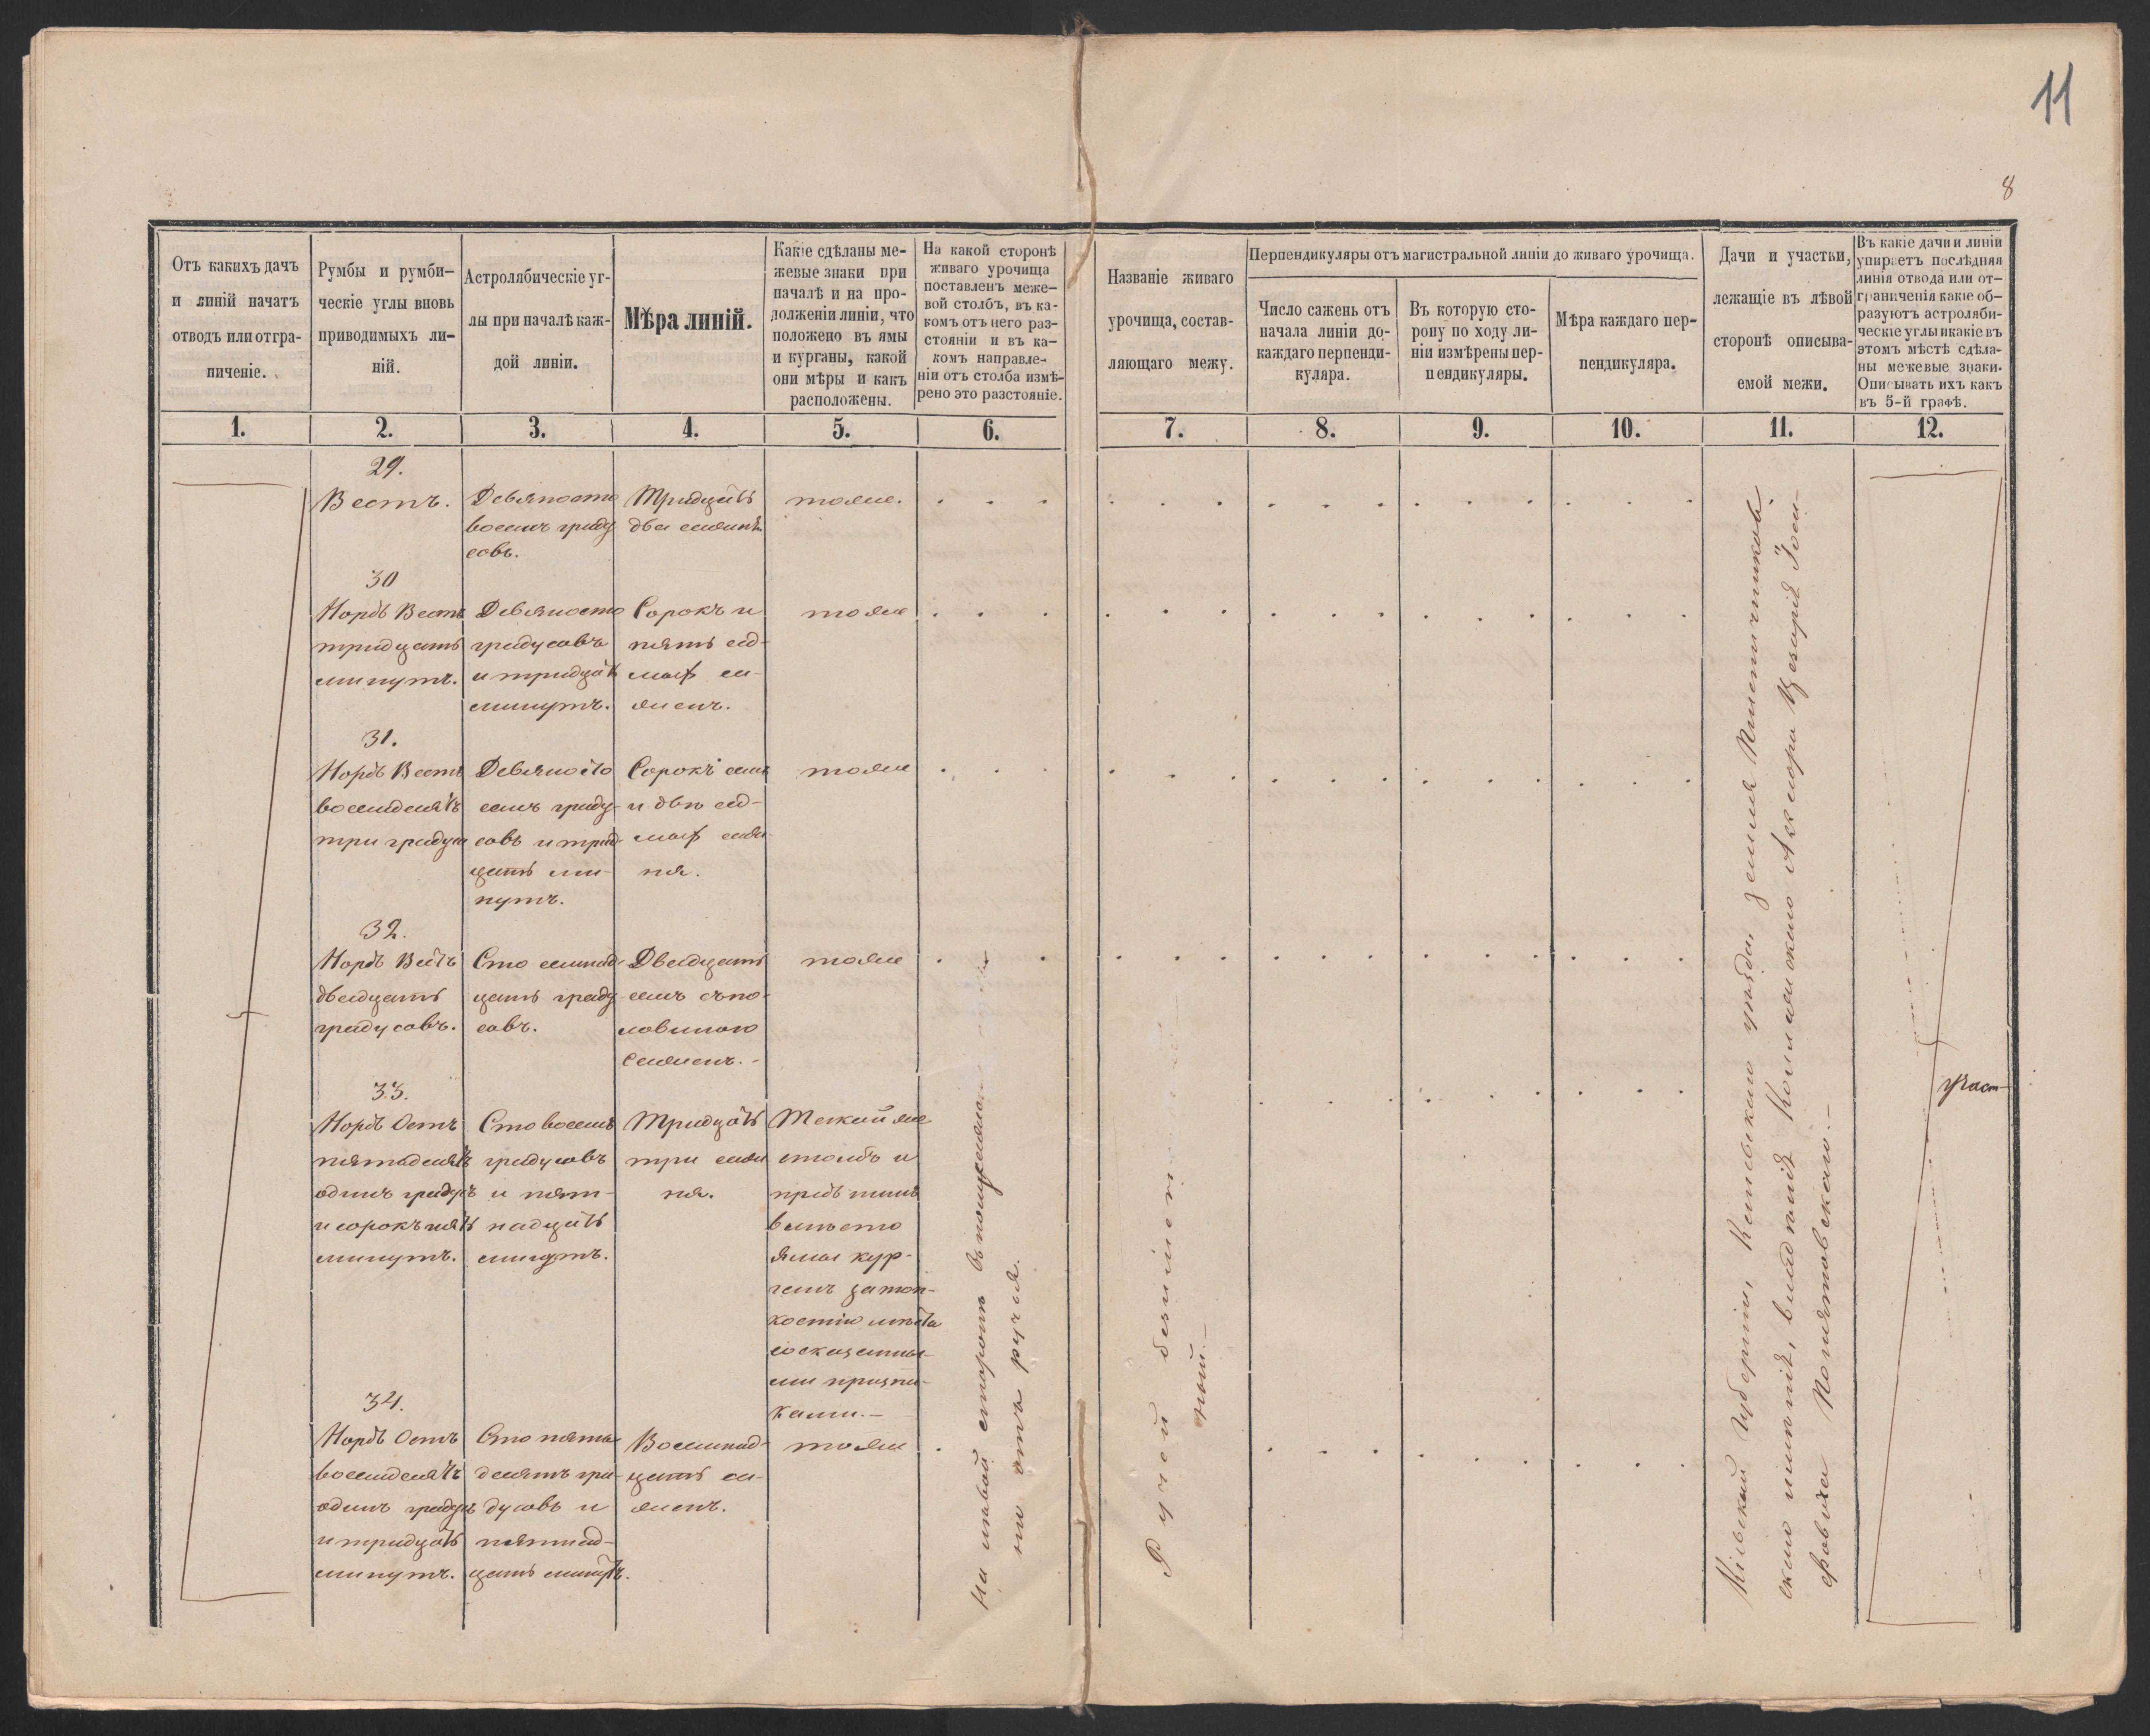 11
8
Отъ какихъ дачъ
и линій начатъ
отводъ или отгра-
ниченіе.
Румбы и румби-
ческіе углы вновь
приводимыхъ ли-
ній.
Астролябическіе уг-
лы при началѣ каж-
дой линіи.
Мѣра линій.
Какіе сдѣланы ме-
жевые знаки при
началѣ и на про-
долженіи линіи, что
положено въ ямы
и курганы, какой
они мѣры и какъ
расположены.
На какой сторонѣ
живаго урочища
поставленъ меже-
вой столбъ, въ ка-
комъ отъ него раз-
стояніи и въ ка-
комъ направле-
ніи отъ столба измѣ-
рено это разстояніе.
Названіе живаго
урочища, состав-
ляющаго межу.
Перпендикуляры отъ магистральной линіи до живаго урочища.
Число сажень отъ
начала линіи до-
каждаго перпенди-
куляра.
Въ которую сто-
рону по ходу ли-
ніи измѣрены пер-
пендикуляры.
Мѣра каждаго пер-
пендикуляра.
Дачи и участки,
лежащіе въ лѣвой
сторонѣ описыва-
емой межи.
Въ какіе дачи и линіи
упираетъ послѣдняя
линія отвода или от-
граниченія какіе об-
разуютъ астроляби-
ческіе углы и какіе въ
этомъ мѣстѣ сдѣла-
ны межевые знаки.
Описывать ихъ какъ
въ 5-й графѣ.
1. 2. 3. 4. 5. 6. 7. 8. 9. 10. 11. 12.
29.
Вестъ.
Девяносто
восемь граду
совъ.
Тридцать
два сажня.
тоже.
30
Нордъ Вестъ
тридцать
минутъ.
Девяносто
градусовъ
и тридцать
минутъ.
Сорокъ и
пять сѣд-
мыхъ са-
женъ.
тоже
31.
Нордъ Вестъ
восемдесятъ
три градуса
Девяносто
семь граду-
совъ и трид-
цать ми-
нутъ.
Сорокъ семь
и двѣ сед-
мыхъ саж
ня.
тоже
32.
Нордъ Вестъ
двадцать
градусовъ.
Сто семнад-
цать граду-
совъ.
Двадцать
семь съ по-
ловиною
саженъ.-
тоже
33.
Нордъ Остъ
пятьдесятъ
одинъ градусъ
и сорокъ пять
минутъ.
Сто восемь
градусовъ
и пят-
надцать
минутъ.
Тридцать
три саж
ня.
Такой же
столбъ и
предъ нимъ
вмѣсто
ямы кур-
ганъ за топ-
костію мѣста
со сказанны-
ми призна-
ками.-
34.
Нордъ Остъ
восемдесятъ
одинъ градусъ
и тридцать
минутъ.
Сто пять
десятъ гра-
дусовъ и
пятнад-
цать минутъ.
Восемнад-
цать са-
женъ.
тоже
На лѣвой сторонѣ въ полусажнѣ
но отъ ручья.
Ручей безъимен
ный.-
Кіевской Губерніи, Кіевскаго уѣзда, земля
скаго имѣнія, владѣнія Коллежскаго Ассесора Цезарія Іоси-
фовича Понятовскаго.-
Участ-